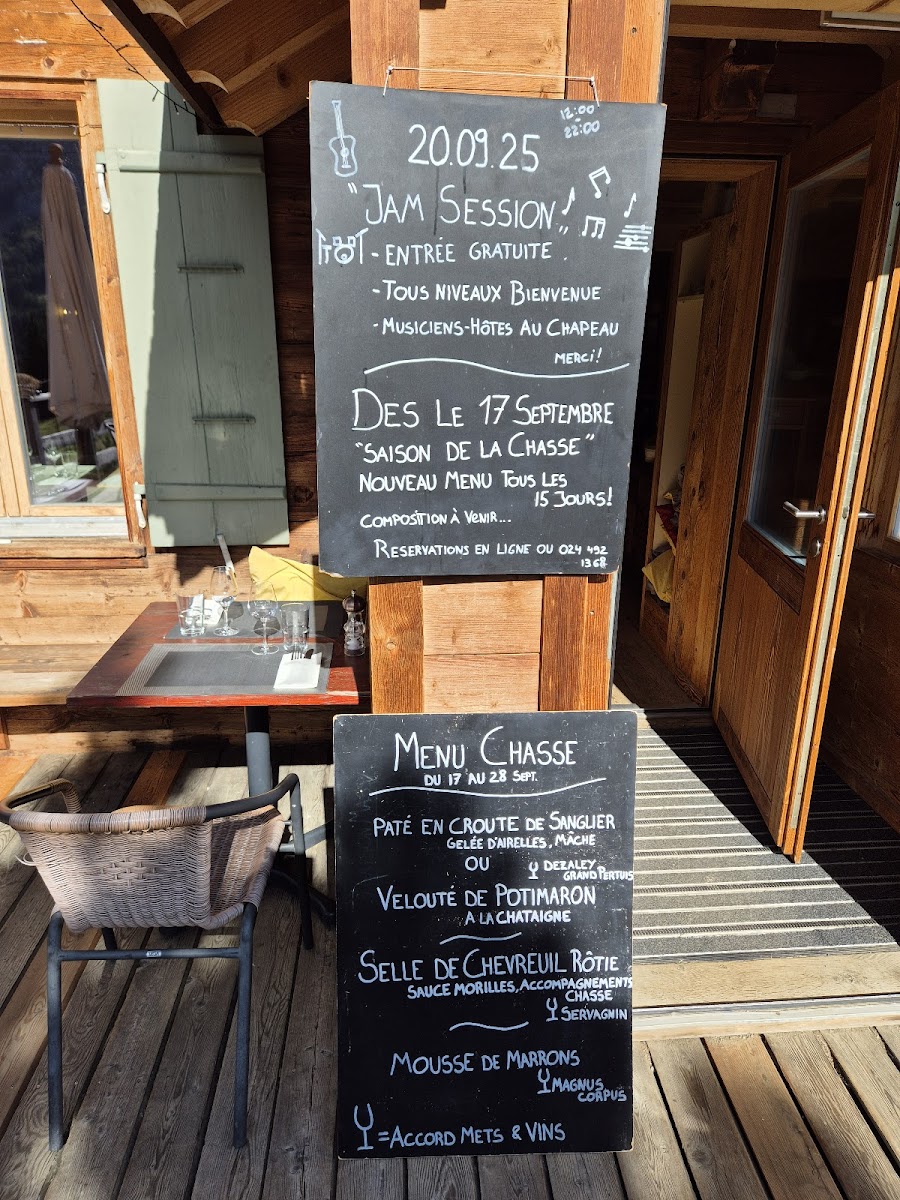 12:00
-
22:00
20.09.25
"JAM SESSION"
- ENTRÉE GRATUITE.
- TOUS NIVEAUX BIENVENUE
- MUSICIENS-HÔTES AU CHAPEAU
MERCI!
DES LE 17 SEPTEMBRE
"SAISON DE LA CHASSE"
NOUVEAU MENU TOUS LES
15 JOURS!
COMPOSITION À VENIR...
RESERVATIONS EN LIGNE OU 024 492
1368
MENU CHASSE
DU 17 AU 28 SEPT.
PATÉ EN CROUTE DE SANGLIER
GELÉE D'AIRELLES, MÂCHE
OU
DEZALEY
GRAND PERTUIS
VELOUTÉ DE POTIMARON
A LA CHATAIGNE
SELLE DE CHEVREUIL RÔTIE
SAUCE MORILLES, ACCOMPAGNEMENTS
CHASSE
SERVAGNIN
MOUSSE DE MARRONS
MAGNUS
CORPUS
= ACCORD METS & VINS